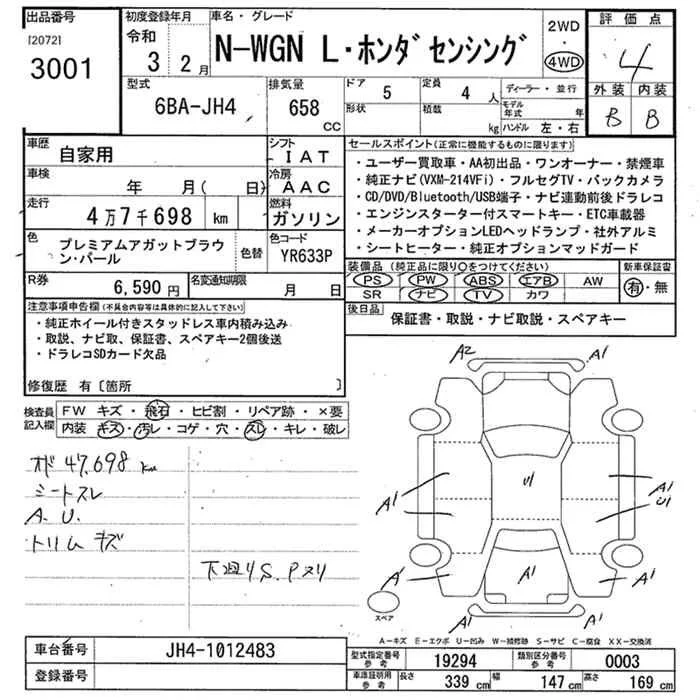 出品番号
[2072]
3001
初度登録年月
令和
3 2月
車名・グレード
N-WGN L・ホンダセンシング
2WD
・
4WD
評価点
4
外装 内装
B B
型式
6BA-JH4
排気量
658
CC
ドア
5
形状
定員
4 人
積載
kg
ディーラー・並行
モデル
年式 年
ハンドル 左・右
車歴
自家用
シフト
IAT
車検
年 月( 日)
冷房
AAC
走行
4万7千698 km
燃料
ガソリン
色
プレミアムアガットブラウ
ン・パール
色替
色コード
YR633P
R券
6,590 円
名変通知期限
月 日
セールスポイント(正常に機能するものに限ります)
・ユーザー買取車・AA初出品・ワンオーナー・禁煙車
・純正ナビ(VXM-214VFi)・フルセグTV・バックカメラ
・CD/DVD/Bluetooth/USB端子・ナビ連動前後ドラレコ
・エンジンスターター付スマートキー・ETC車載器
・メーカーオプションLEDヘッドランプ・社外アルミ
・シートヒーター・純正オプションマッドガード
装備品(純正品に限り○をつけてください)
PS PW ABS エアB AW
SR ナビ TV カワ
新車保証書
有・無
後日品
保証書・取説・ナビ取説・スペアキー
注意事項申告欄(不具合内容等は具体的に記入して下さい)
・純正ホイール付きスタッドレス車内積み込み
・取説、ナビ取、保証書、スペアキー2個後送
・ドラレコSDカード欠品
修復歴 有[箇所 ]
検査員
記入欄
FW キズ・飛石・ヒビ割・リペア跡・×要
内装 キズ・汚レ・コゲ・穴・スレ・キレ・破レ
オド 47,698 km
シートスレ
A.U.
トリム キズ
下廻りS.Pスリ
A2 A1
U1
A1 A1
A1 U1
A1 A1
A1 A1
スペア
A-キズ E-エクボ U-凹み W-補修跡 S-サビ C-腐食 XX-交換済
車台番号
JH4-1012483
登録番号
型式指定番号
参考
19294
類別区分番号
参考
0003
車庫証明用
参考
長さ 339 cm
幅 147 cm
高さ 169 cm